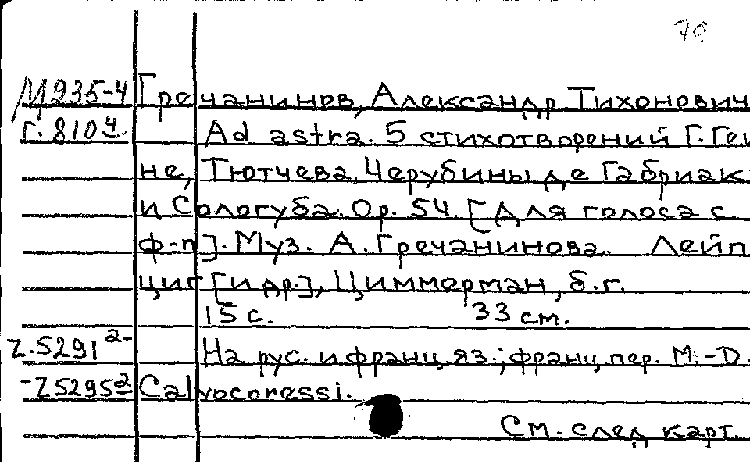 70
М935-4 Гречанинов, Александр Тихонович
Г.810ч Ad astra. 5 стихотворений Г. Гей
не, Тютчева, Черубины де Габриак
и Сологуба. Op. 54. [Для голоса с
ф-п]. Муз. А. Гречанинова. Лейп
циг [и др.], Циммерман, б.г.
15 с. 33 см.
Z.5291 2- На рус. и франц. яз.; франц. пер. M.-D.
-Z5295 2 Calvocoressi.
См. след карт.